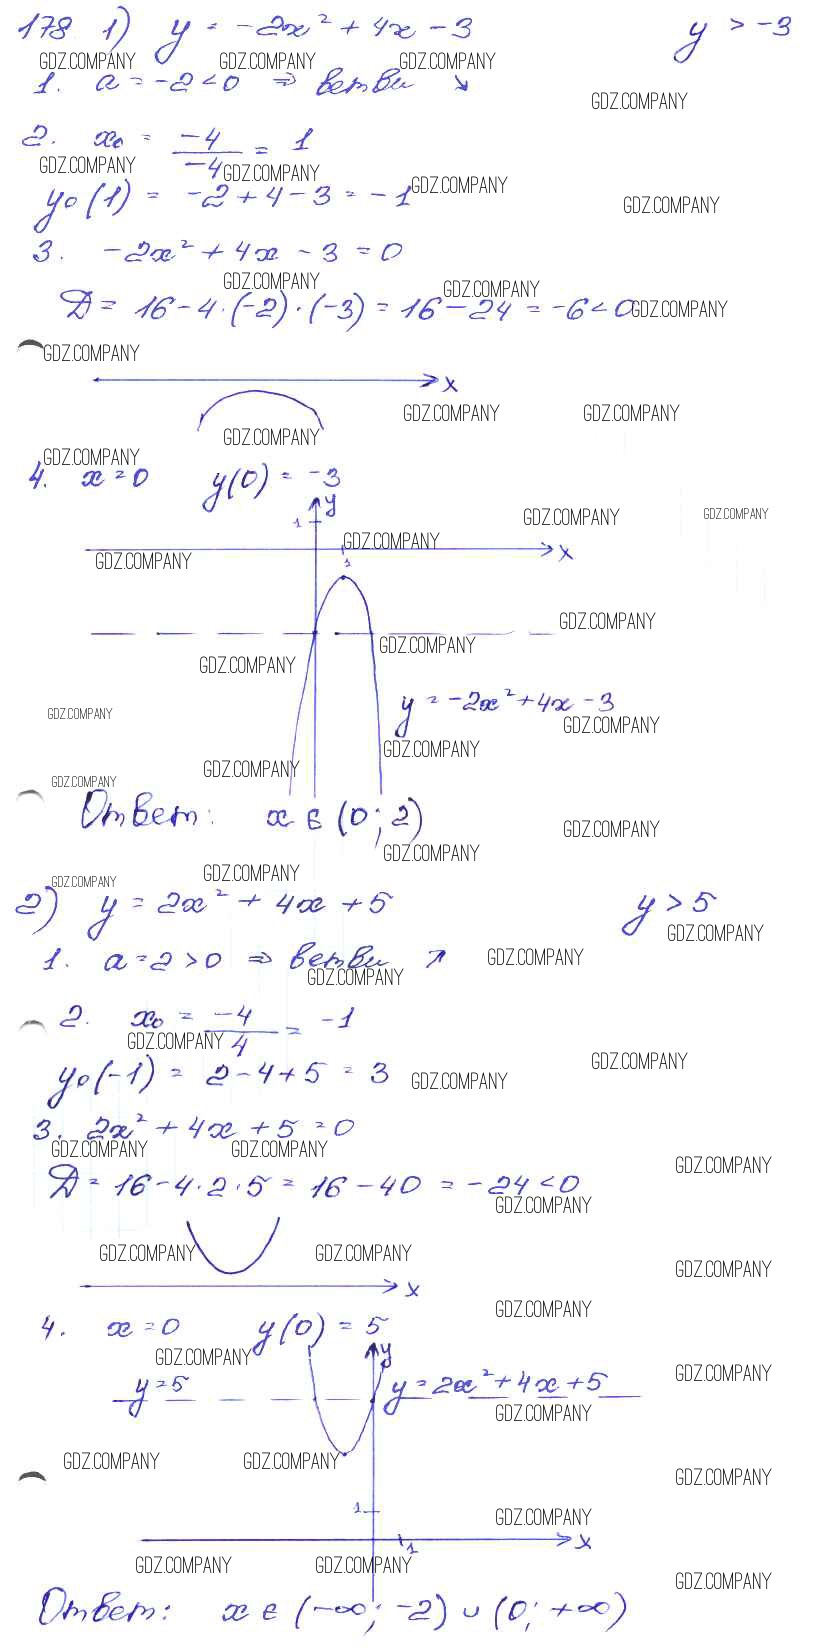 178 1) y = -2x² + 4x - 3 y > -3
GDZ.COMPANY GDZ.COMPANY GDZ.COMPANY
1. a = -2 < 0 ⇒ ветви ↘
GDZ.COMPANY
2. x₀ = -4/-4 = 1
GDZ.COMPANY GDZ.COMPANY GDZ.COMPANY
y₀(1) = -2 + 4 - 3 = -1
GDZ.COMPANY
3. -2x² + 4x - 3 = 0
GDZ.COMPANY GDZ.COMPANY
D = 16 - 4·(-2)·(-3) = 16 - 24 = -6 < 0
GDZ.COMPANY
GDZ.COMPANY
x
GDZ.COMPANY GDZ.COMPANY
GDZ.COMPANY
GDZ.COMPANY
4. x = 0 y(0) = -3
y
1
GDZ.COMPANY GDZ.COMPANY
GDZ.COMPANY
x
GDZ.COMPANY
1
GDZ.COMPANY
GDZ.COMPANY
GDZ.COMPANY
y = -2x² + 4x - 3
GDZ.COMPANY GDZ.COMPANY
GDZ.COMPANY
GDZ.COMPANY
GDZ.COMPANY
Ответ: x ∈ (0; 2)
GDZ.COMPANY
GDZ.COMPANY
GDZ.COMPANY GDZ.COMPANY
2) y = 2x² + 4x + 5 y > 5
GDZ.COMPANY
1. a = 2 > 0 ⇒ ветви ↗
GDZ.COMPANY
GDZ.COMPANY
2. x₀ = -4/4 = -1
GDZ.COMPANY GDZ.COMPANY
y₀(-1) = 2 - 4 + 5 = 3
GDZ.COMPANY
3. 2x² + 4x + 5 = 0
GDZ.COMPANY GDZ.COMPANY GDZ.COMPANY
D = 16 - 4·2·5 = 16 - 40 = -24 < 0
GDZ.COMPANY
GDZ.COMPANY GDZ.COMPANY GDZ.COMPANY
x
GDZ.COMPANY
4. x = 0 y(0) = 5
GDZ.COMPANY
y
GDZ.COMPANY
y = 5 y = 2x² + 4x + 5
GDZ.COMPANY
GDZ.COMPANY GDZ.COMPANY GDZ.COMPANY
1
GDZ.COMPANY
x
1
GDZ.COMPANY GDZ.COMPANY GDZ.COMPANY
Ответ: x ∈ (-∞; -2) ∪ (0; +∞)